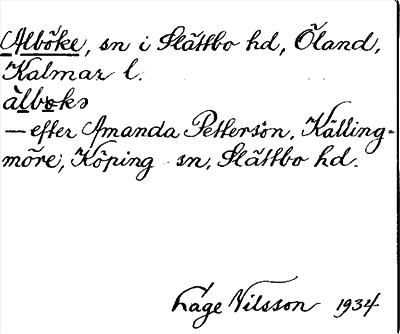 Alböke, sn i Slättbo hd, Öland,
Kalmar l.
àlbokə
— efter Amanda Petterson, Källing-
möre, Köping sn, Slättbo hd.
Lage Nilsson 1934